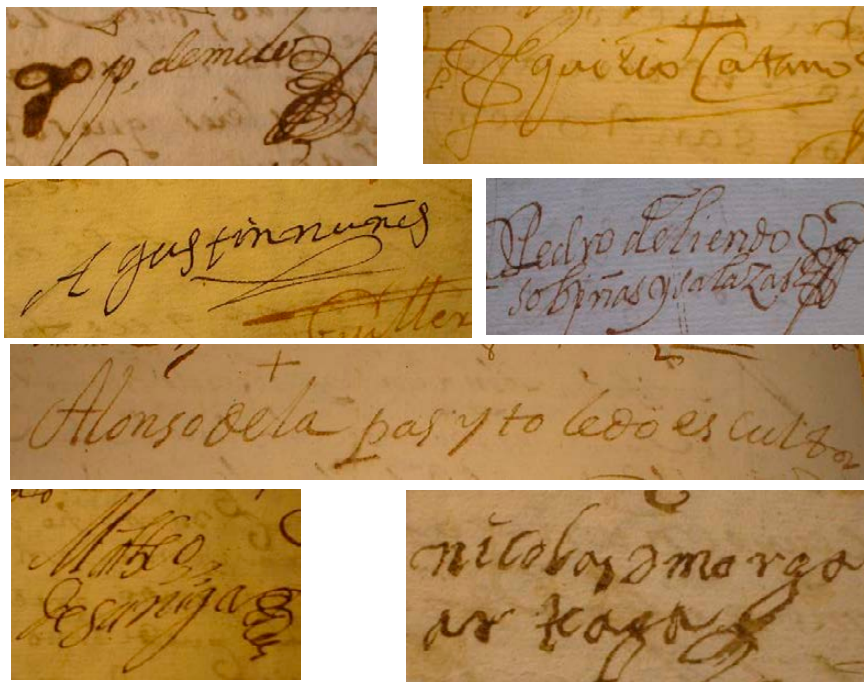 p. de mera
quirio Cataño
Agustin nuñes
Guiller
Pedro de liendo
sobiñas y salazar
Alonso de la pas y to ledo es cultor
Matheo
de çuñiga
nicolas d marga
ar teaga